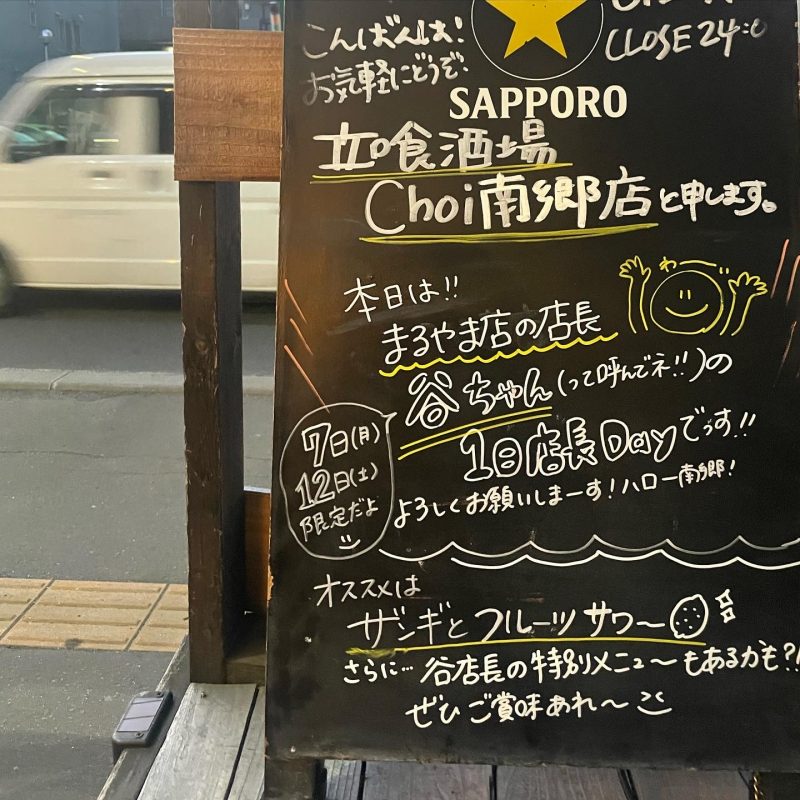 こんばんは!
お気軽にどうぞ。
CLOSE 24:0
SAPPORO
立喰酒場
Choi南郷店と申します。
本日は!!
わーい
まるやま店の店長
谷ちゃん(って呼んでネ!!)の
1日店長Dayでっす!!
7日(月)
12日(土)
限定だよ
よろしくお願いしまーす!ハロー南郷!
オススメは
ザンギとフルーツサワ〜
さらに…谷店長の特別メニュ〜もあるかも?!!
ぜひご賞味あれ〜